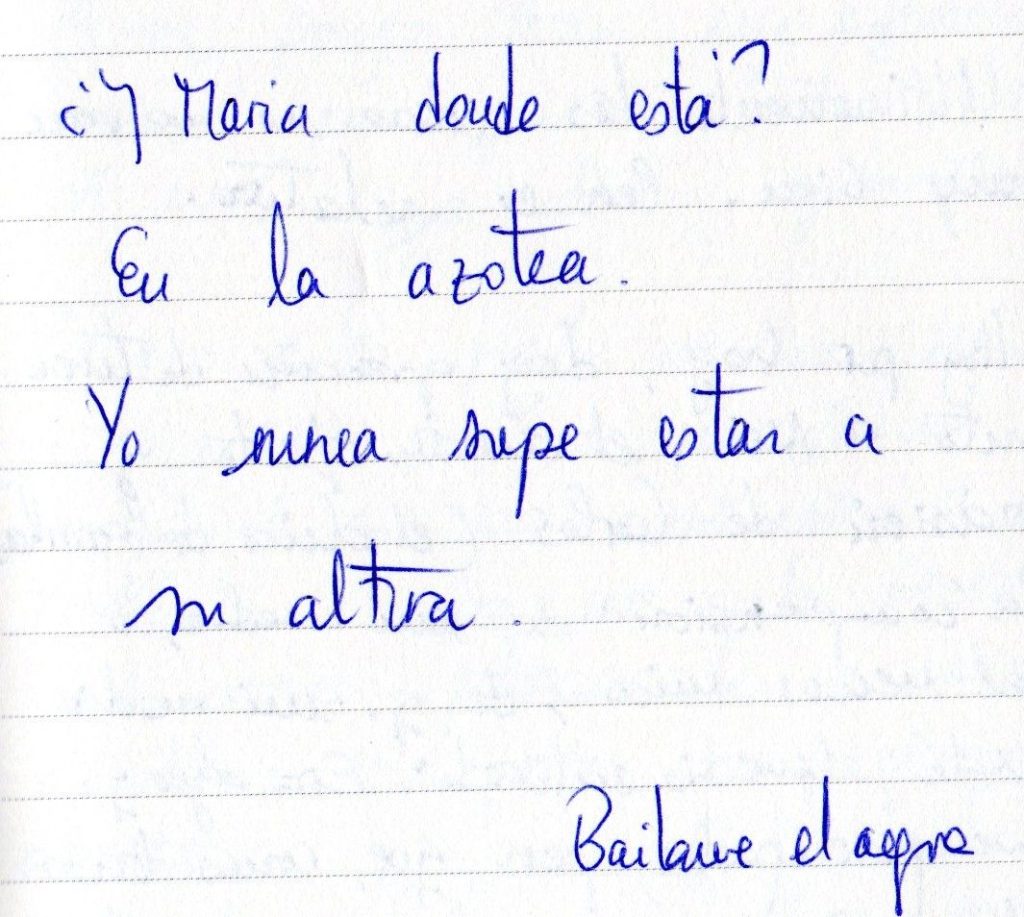 ¿Y Maria donde está?
En la azotea.
Yo nunca supe estar a
su altura.
Bailame el agua